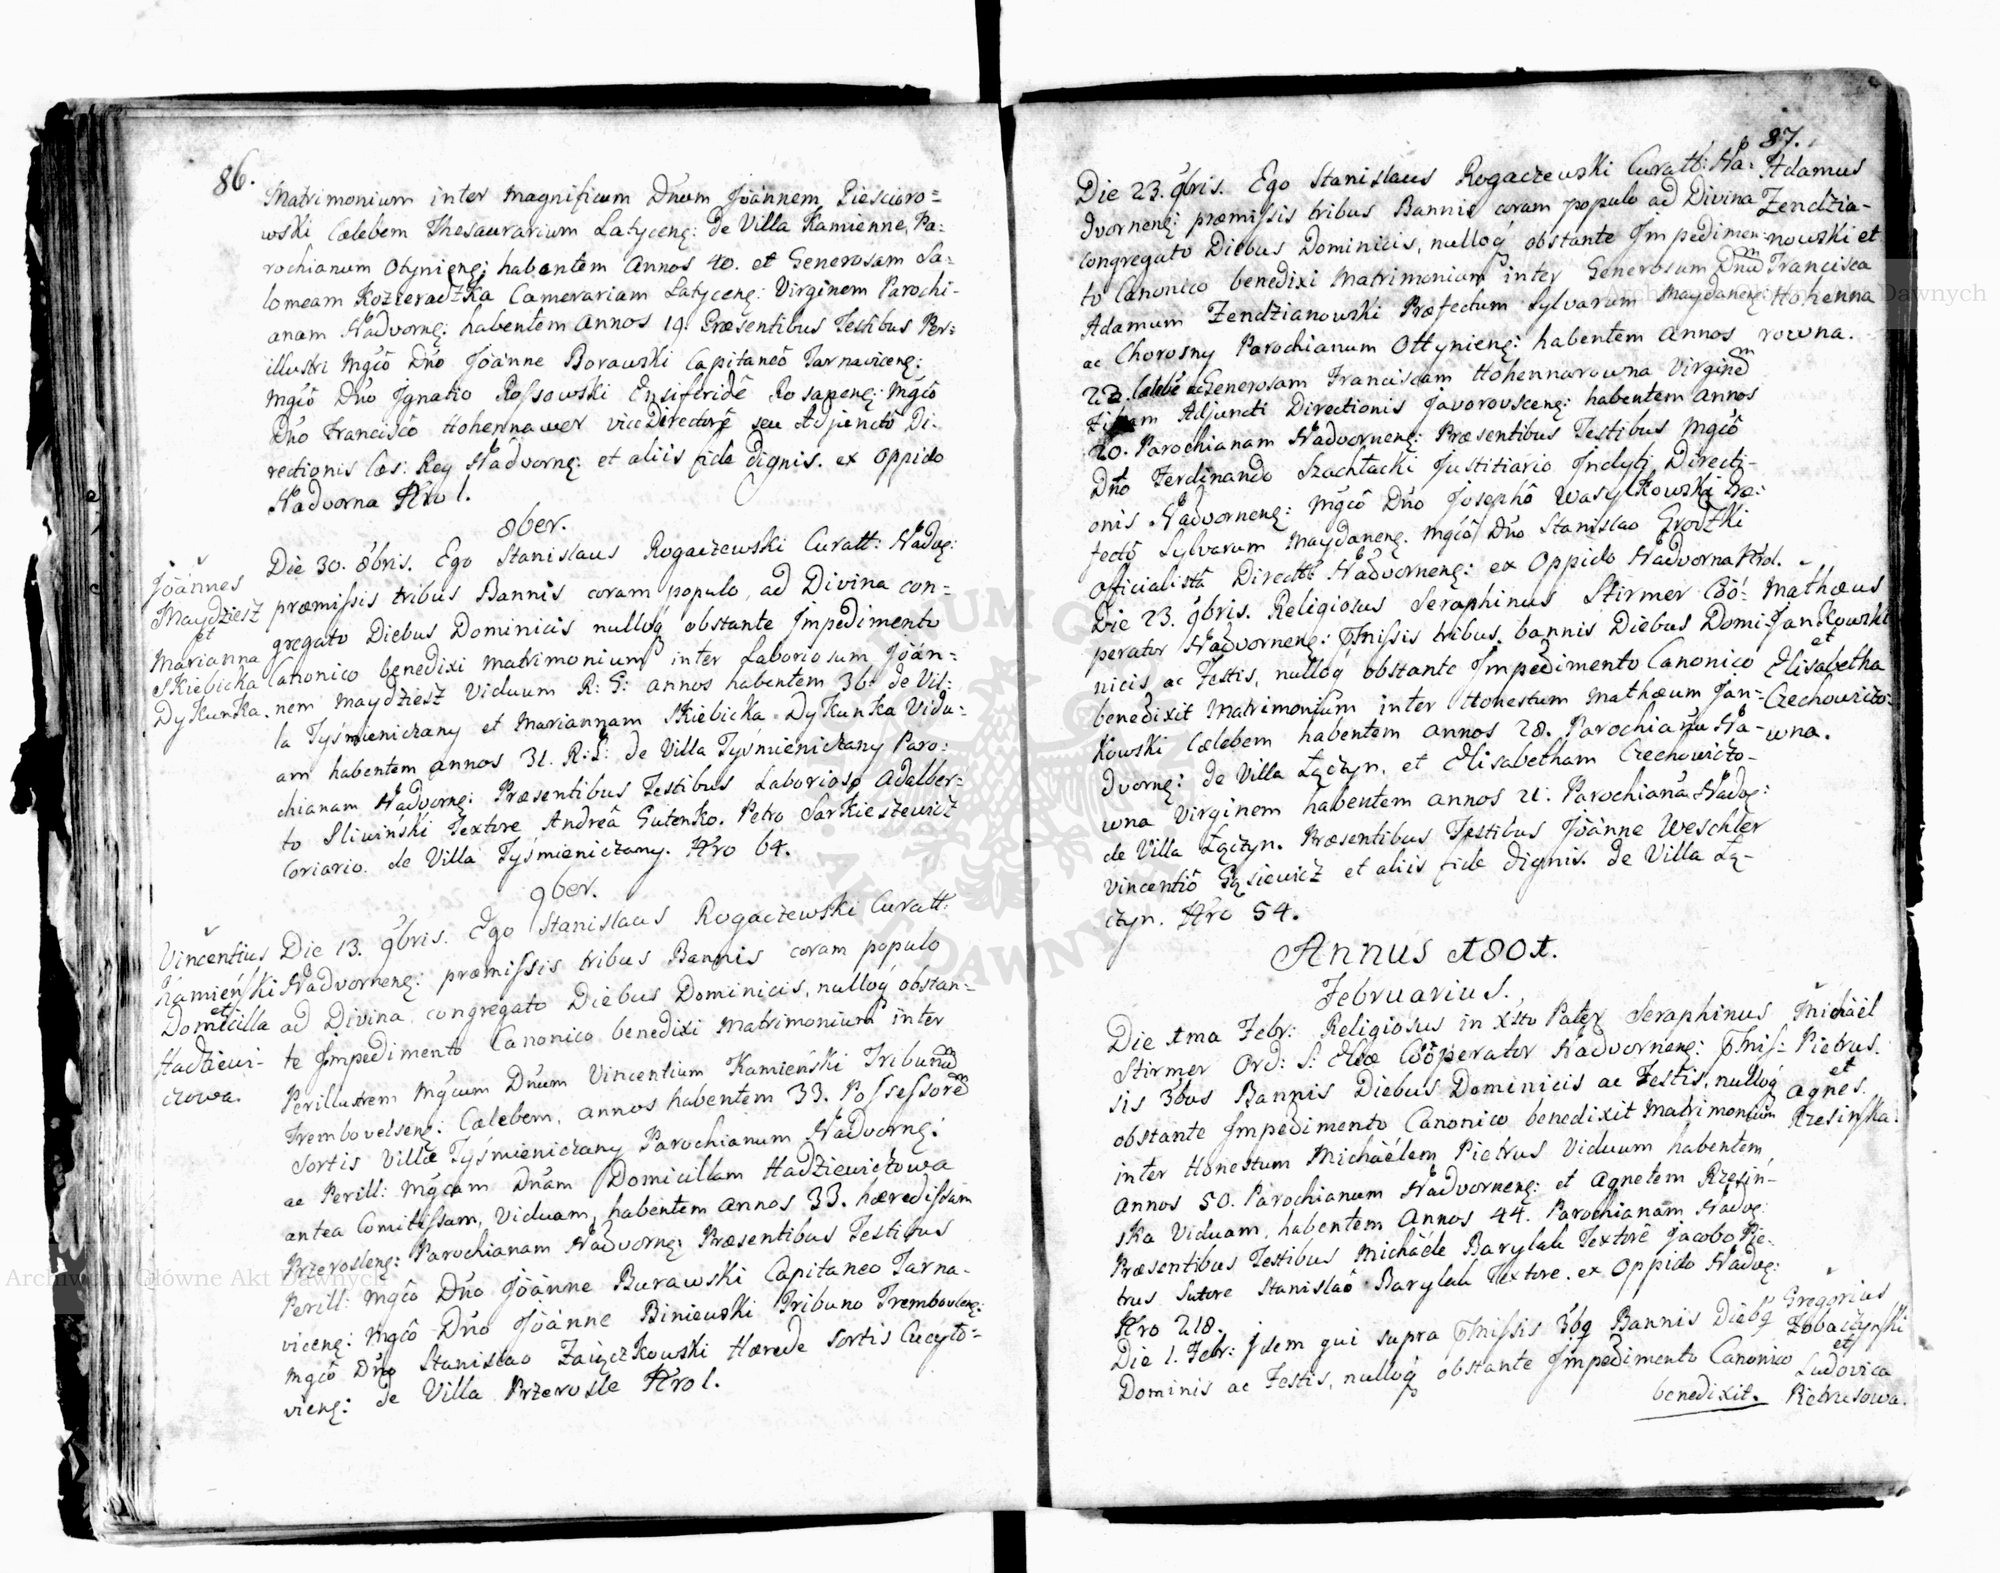 86.
Matrimonium inter Magnificum Dnum Joannem Piescioro=
wski Cælebem Thesaurarium Latyceng: de Villa Kamienne, Pa:
rochianum Otynieng: habentem Annos 40. et Generosam Sa-
lomeam Kozieradzka Camerariam Latyceng: Virginem Parochi-
anam Nadvorng: habentem annos 19. Præsentibus Testibus Per=
illustri Mgcô Dnô Joanne Borawski Capitaneô Tarnaviceng:
Mgcô Dnô Ignatio Rossowski Ensiferidê Rosapeng: Mgcô
Dnô Franciscô Hohennawer vice Directorê seu Adjunctô Di-
rectionis Cæs: Reg Nadvorng: et aliis fide dignis. ex Oppido
Nadvorna Nro 1.
8ber.
Joannes
Maydziesz
et
Marianna
Skiebicka
Dykunka.
Die 30. 8bris. Ego Stanislaus Rogaczewski Curatt: Nadvg:
præmissis tribus Bannis coram populo, ad Divina con-
gregato Diebus Dominicis nulloq obstante Impedimento
Canonico benedixi Matrimonium inter Laboriosum Joan-
nem Maydziesz Viduum R: G: annos habentem 36. de Vil:
la Tyśmieniczany et Mariannam Skiebicka Dykunka Vidu-
am habentem annos 31. R: L: de Villa Tyśmieniczany Paro:
chianam Nadvorng: Præsentibus Testibus Laborioso Adalber-
to Sliwiński Textore Andreâ Gutenko. Petro Sarkieszewicz
Coriario. de Villa Tyśmieniczany. Nro 64.
9ber.
Vincentius
Kamieński
et
Domicilla
Hadziewi-
czowa.
Die 13. 9bris. Ego Stanislaus Rogaczewski Curatt:
Nadvorneng: præmissis tribus Bannis coram populo
ad Divina congregato Diebus Dominicis, nulloq obstan-
te Impedimento Canonico benedixi Matrimonium inter
Perillustrem Mgcum Dnum Vincentium Kamieński Tribunum
Trembovelseng: Cælebem, annos habentem 33. Possessorem
Sortis Villæ Tyśmieniczany Parochianum Nadvorng:
ac Perill: Mgcam Dnam Domicillam Hadziewiczowa
antea Comitissam, Viduam, habentem annos 33. hæredissam
Przerosleng: Parochianam Nadvorng: Præsentibus Testibus
Perill: Mgcô Dnô Joanne Burawski Capitaneo Tarna-
viceng: Mgcô Dnô Joanne Biniewski Tribuno Trembovleng:
Mgcô Dnô Stanislao Zaiączkowski Hærede sortis Cucyło-
vieng: de Villa Przerosle Nro 1.
87.
Die 23. 9bris. Ego Stanislaus Rogaczewski Curatt: Na-
dvorneng: præmissis tribus Bannis coram populo ad Divina
congregato Diebus Dominicis, nulloq obstante Impedimen-
to Canonico benedixi Matrimonium inter Generosum Dnum
Adamum Zendzianowski Præfectum Sylvarum Maydaneng:
ac Chorosny Parochianum Ottynieng: habentem annos
Cælebê ac Generosam Franciscam Hohennarowna Virginem
Filiam Adjuncti Directionis Javorovsceng: habentem annos
20. Parochianam Nadvorneng: Præsentibus Testibus Mgcô
Dnô Ferdinando Szachłacki Justitiario Indyti Directi-
onis Nadvorneng: Mgcô Dnô Josephô Wasylkowski Præ:
fectô Sylvarum Maydaneng. Mgcô Dnô Stanislao Grodzki
Officialistâ Directtê Nadvorneng: ex Oppido Nadvorna Nro1.
Adamus
Zendzia-
nowski et
Francisca
Hohenna
rowna.
Die 23. 9bris. Religiosus Seraphinus Stirmer Coo-
perator Nadvorneng: Pmissis tribus bannis Diebus Domi-
nicis ac Festis, nulloq obstante Impedimento Canonico
benedixit Matrimonium inter Honestum Mathæum Jan-
kowski Cælebem habentem annos 28. Parochianu Na-
dvorng: de Villa Łączyn. et Elisabetham Czechowiczo-
wna Virginem habentem annos 21. Parochianâ Nadvg:
de Villa Łączyn. Præsentibus Testibus Joanne Weschter
Vincentiô Gąsiewicz et aliis fide dignis. de Villa Łą-
czyn. Nro 54.
Mathæus
Jankowski
et
Elisabetha
Czechowiczo-
wna.
Annus 1801.
Februarius.
Die 1ma Febr: Religiosus in Xsto Pater Seraphinus
Stirmer Ord: S: Eliæ Cooperator Nadvorneng: Pmis-
sis 3bus Bannis Diebus Dominicis ac Festis, nulloq
obstante Impedimento Canonico benedixit Matrimonium
inter Honestum Michaëlem Pietrus Viduum habentem
Annos 50. Parochianum Nadvorneng: et Agnetem Rzesiń-
ska Viduam, habentem Annos 44. Parochianam Nadvg:
Præsentibus Testibus Michaële Barylak Textorê Jacobo Pie-
trus Sutore Stanislaô Barylak Textore. ex Oppido Nadvg:
Nro 218.
Michaël
Pietrus.
et
Agnes.
Rzesińska.
Die 1. Febr: Idem qui supra Pmissis 3bq Bannis Diebq
Dominis ac Festis, nulloq obstante Impedimento Canonico
benedixit.
Gregorius
Zobaczyński
et
Ludovica
Pietrusowa.
Archiwum Główne Akt Dawnych